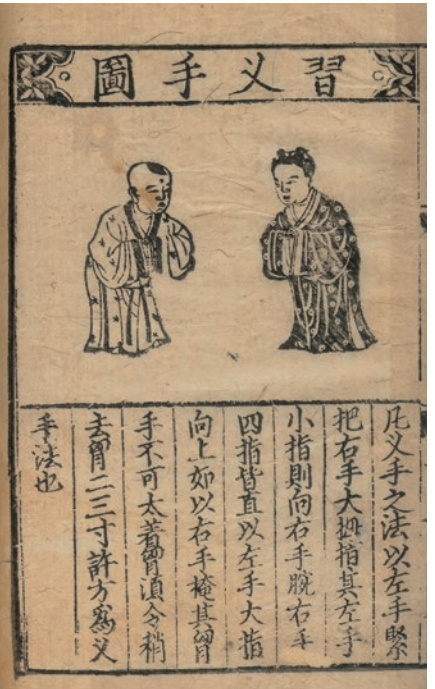 習义手圖
凡义手之法以左手緊
把右手大拇指其左手
小指則向右手腕右手
四指皆直以左手大指
向上如以右手掩其胷
手不可太着胷須令稍
去胷二三寸許方爲义
手法也